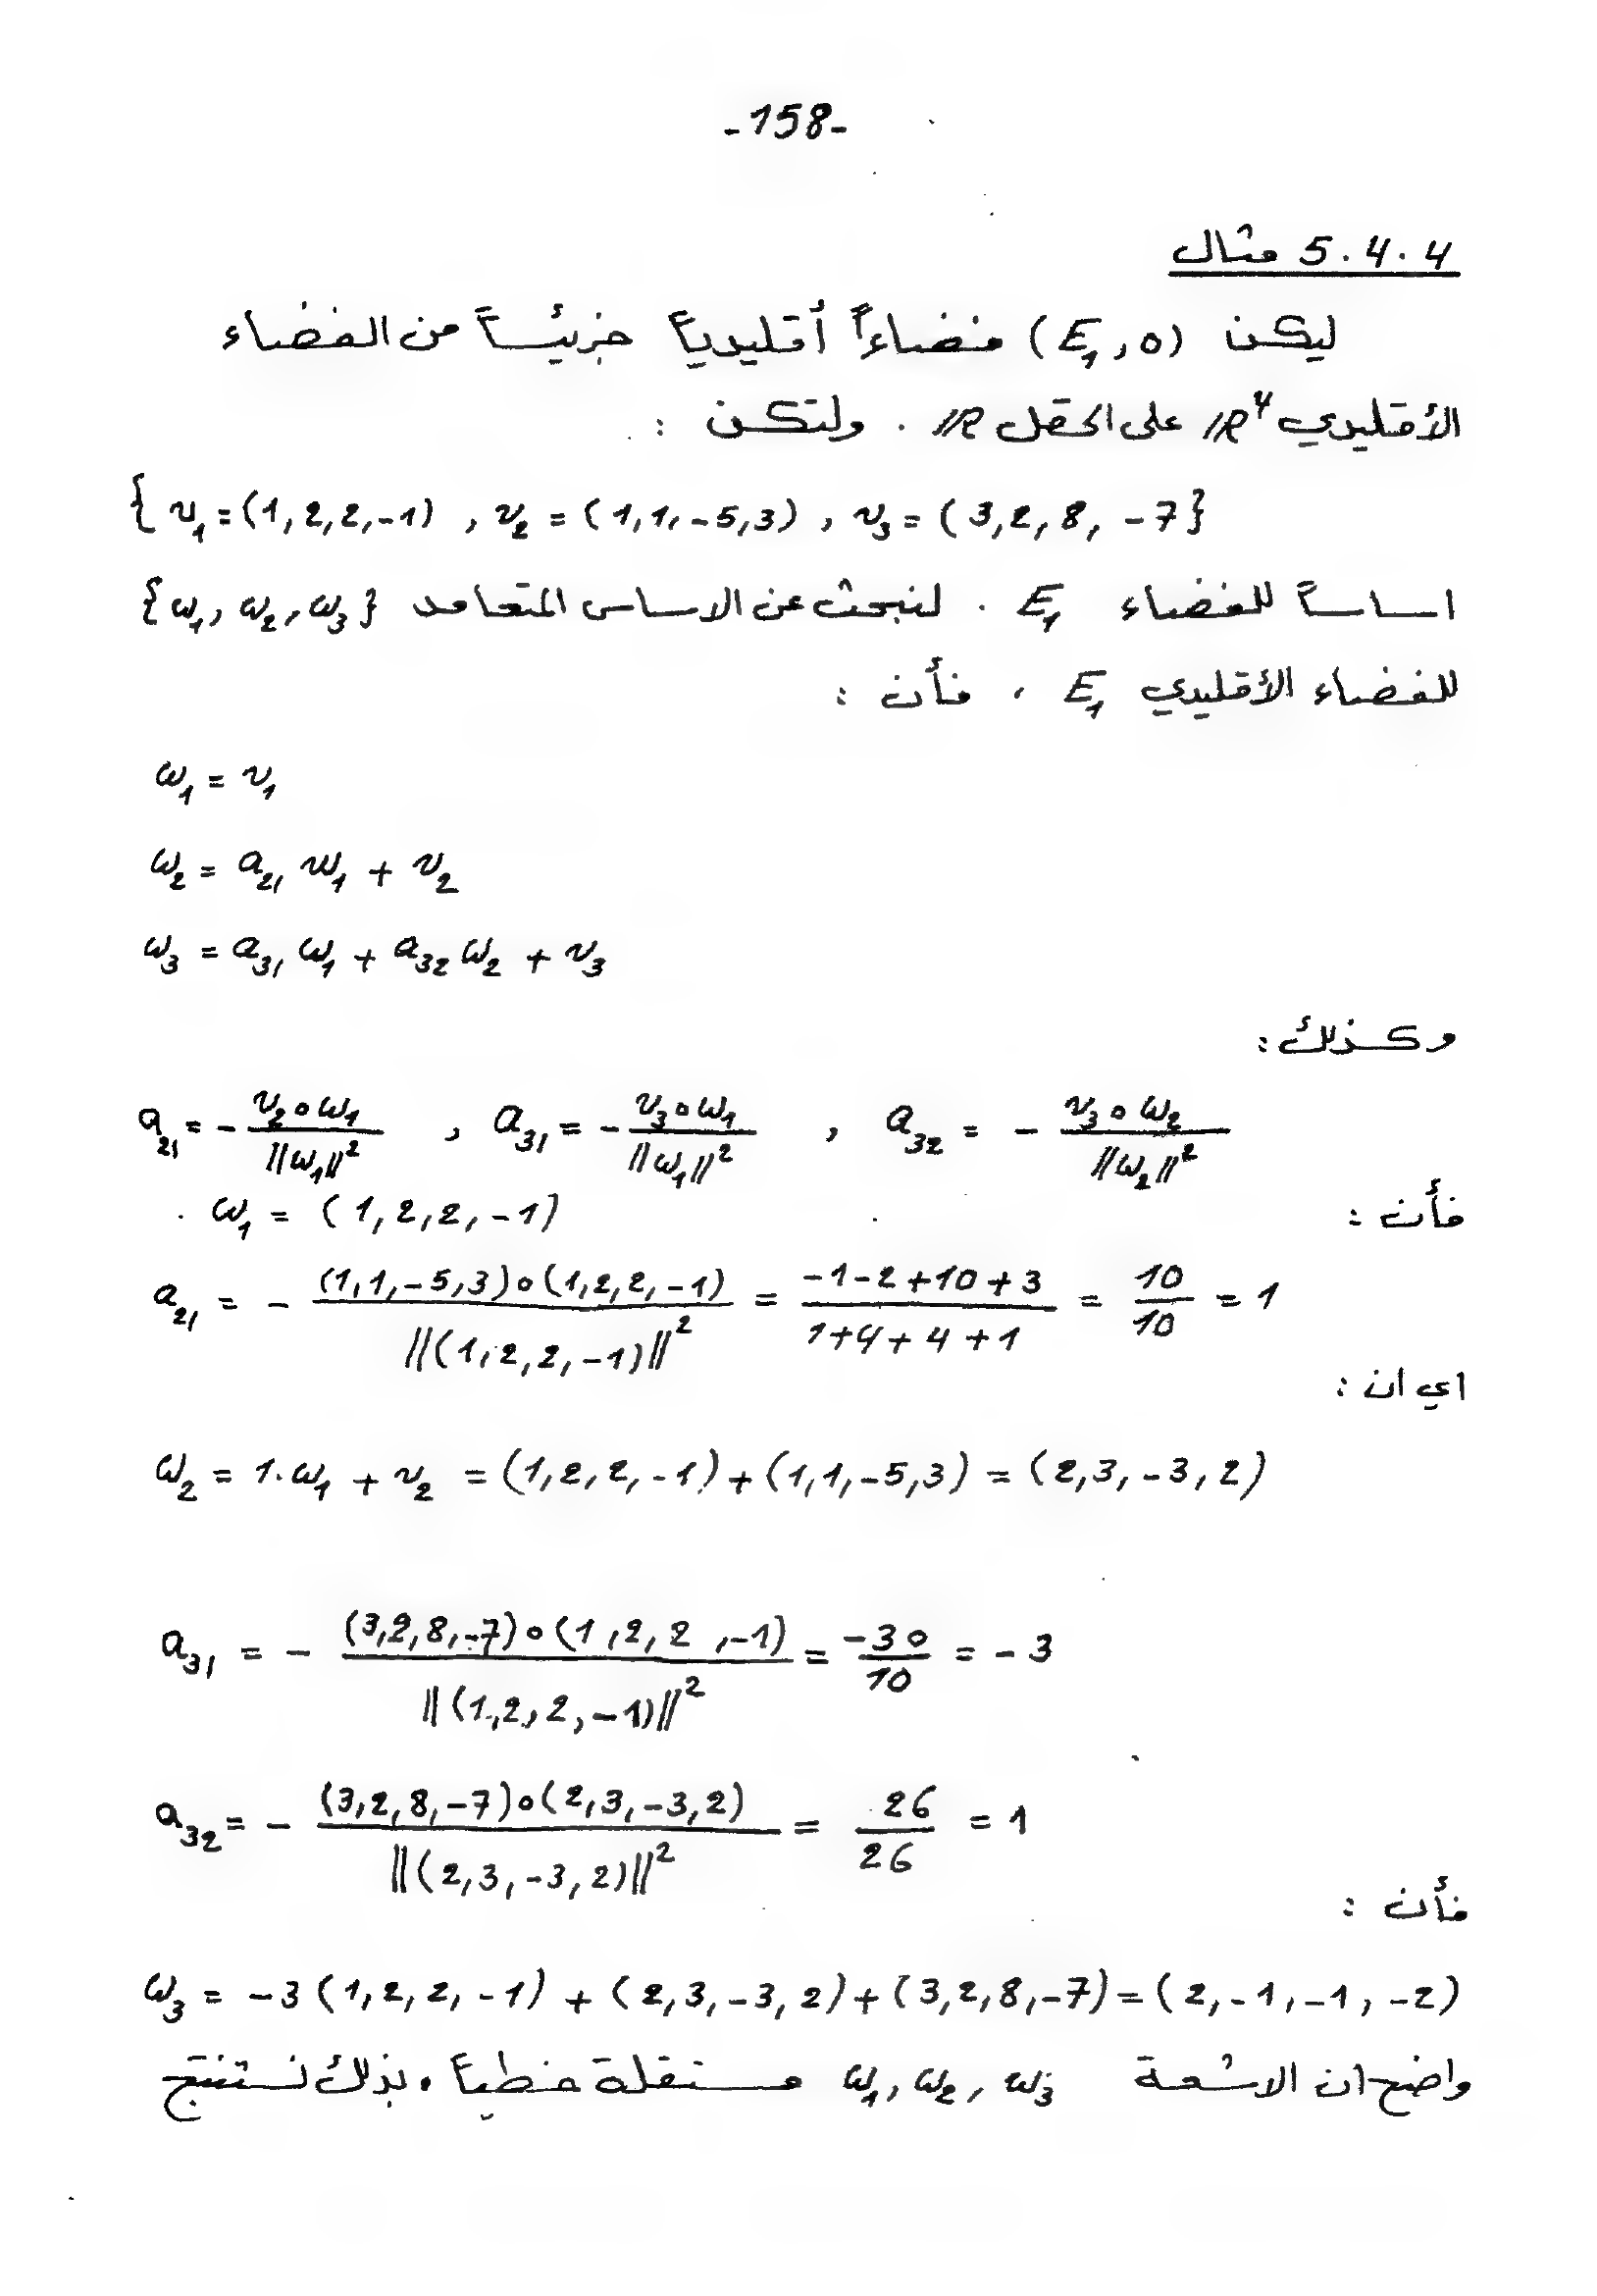 -158-
5.4.4 مثال
ليكن (E₁,o) فضاءاً أقليدياً جزئيـاً من الفضاء
الأقليدي ℝ⁴ على الحقل ℝ . ولتكن :
{ v₁=(1,2,2,-1) , v₂ = (1,1,-5,3) , v₃ = (3,2,8, -7}
اساساً للفضاء E₁ . لنبحث عن الاساس المتعامد {ω₁, ω₂, ω₃}
للفضاء الأقليدي E₁ ، فأن :
ω₁ = v₁
ω₂ = a₂₁ w₁ + v₂
ω₃ = a₃₁ ω₁ + a₃₂ ω₂ + v₃
وكذلك :
a₂₁ = - (v₂ o ω₁)/‖ω₁‖² , a₃₁ = - (v₃ o ω₁)/‖ω₁‖² , a₃₂ = - (v₃ o ω₂)/‖ω₂‖²
فأن : ω₁ = (1,2,2,-1)
a₂₁ = - ((1,1,-5,3) o (1,2,2,-1))/‖(1,2,2,-1)‖² = (-1-2+10+3)/(1+4+4+1) = 10/10 = 1
اي ان :
ω₂ = 1.ω₁ + v₂ = (1,2,2,-1)+(1,1,-5,3) = (2,3,-3,2)
a₃₁ = - ((3,2,8,-7) o (1,2,2,-1))/‖(1,2,2,-1)‖² = -30/10 = -3
a₃₂ = - ((3,2,8,-7) o (2,3,-3,2))/‖(2,3,-3,2)‖² = 26/26 = 1
فأن :
ω₃ = -3 (1,2,2,-1) + (2,3,-3,2)+(3,2,8,-7)=(2,-1,-1,-2)
واضح ان الاشعة ω₁, ω₂, w₃ مستقلة خطياً . بذلك نستنتج